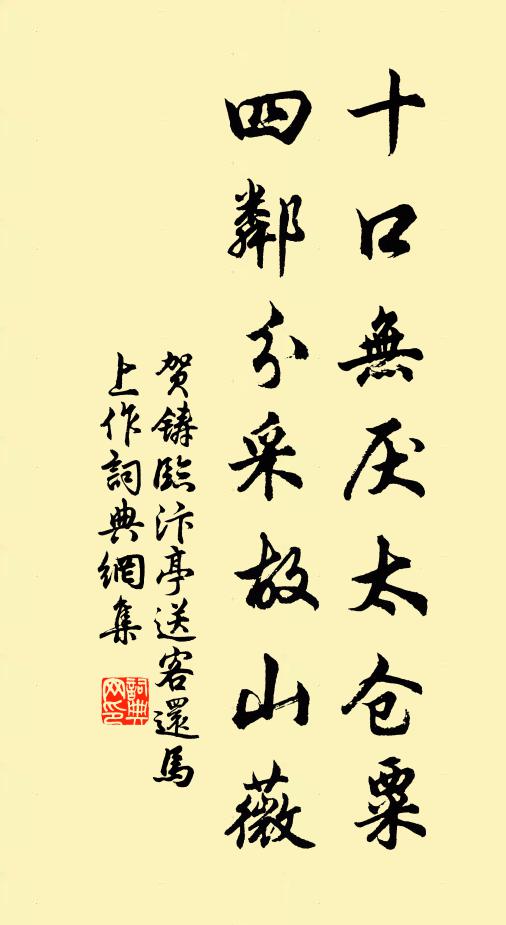 十口無厌太仓粟
四鄰分采故山薇
贺鑄臨汴亭送客還馬
上作詞典網集
詞典
网印